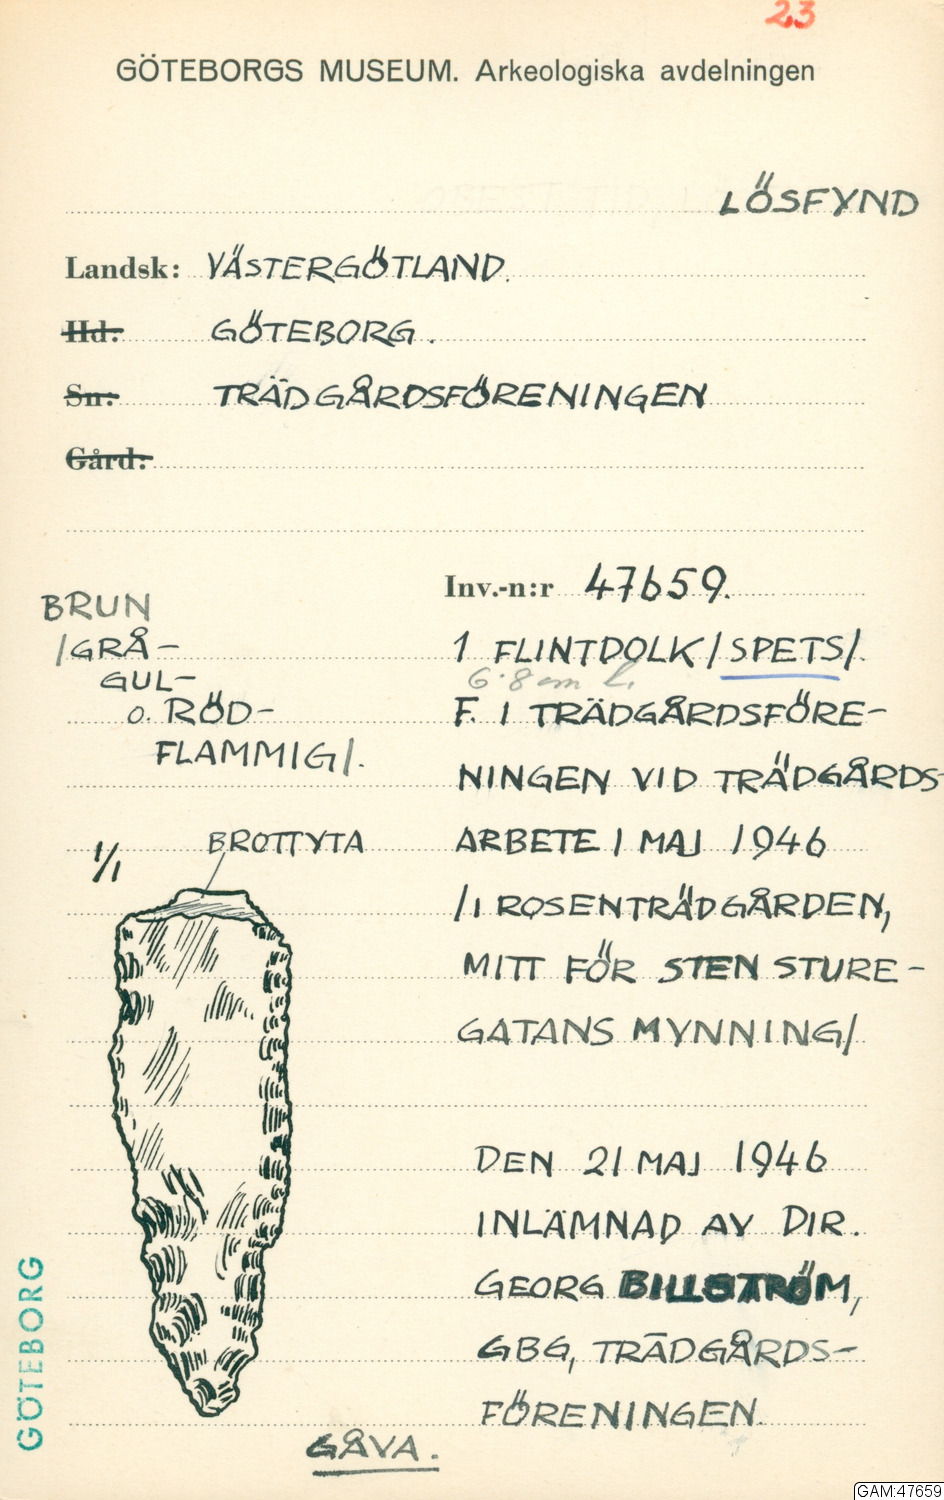 23
GÖTEBORGS MUSEUM. Arkeologiska avdelningen
LÖSFYND
Landsk: VÄSTERGÖTLAND.
Hd: GÖTEBORG.
Sn: TRÄDGÅRDSFÖRENINGEN
Gård:
Inv.-n:r 47659.
BRUN
/GRÅ-
GUL-
o. RÖD-
FLAMMIG/.
1/1
BROTTYTA
1 FLINTDOLK/SPETS/.
6.8 cm l.
F. I TRÄDGÅRDSFÖRE-
NINGEN VID TRÄDGÅRDS-
ARBETE I MAJ 1946
/I ROSENTRÄDGÅRDEN,
MITT FÖR STEN STURE-
GATANS MYNNING/
DEN 21 MAJ 1946
INLÄMNAD AV DIR.
GEORG BILLSTRÖM,
GBG, TRÄDGÅRDS-
FÖRENINGEN.
GÅVA.
GÖTEBORG
GAM:47659